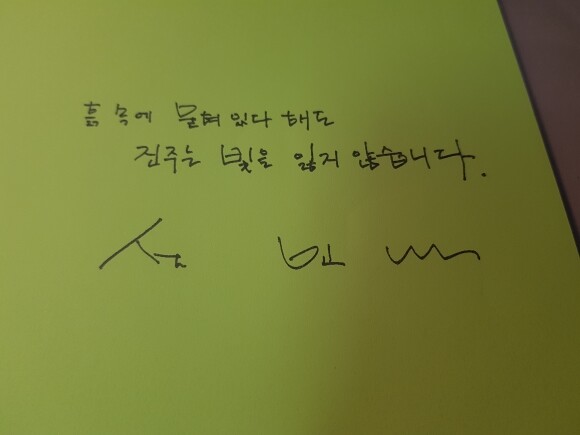 흙 속에 묻혀 있다 해도
진주는 빛을 잃지 않습니다.